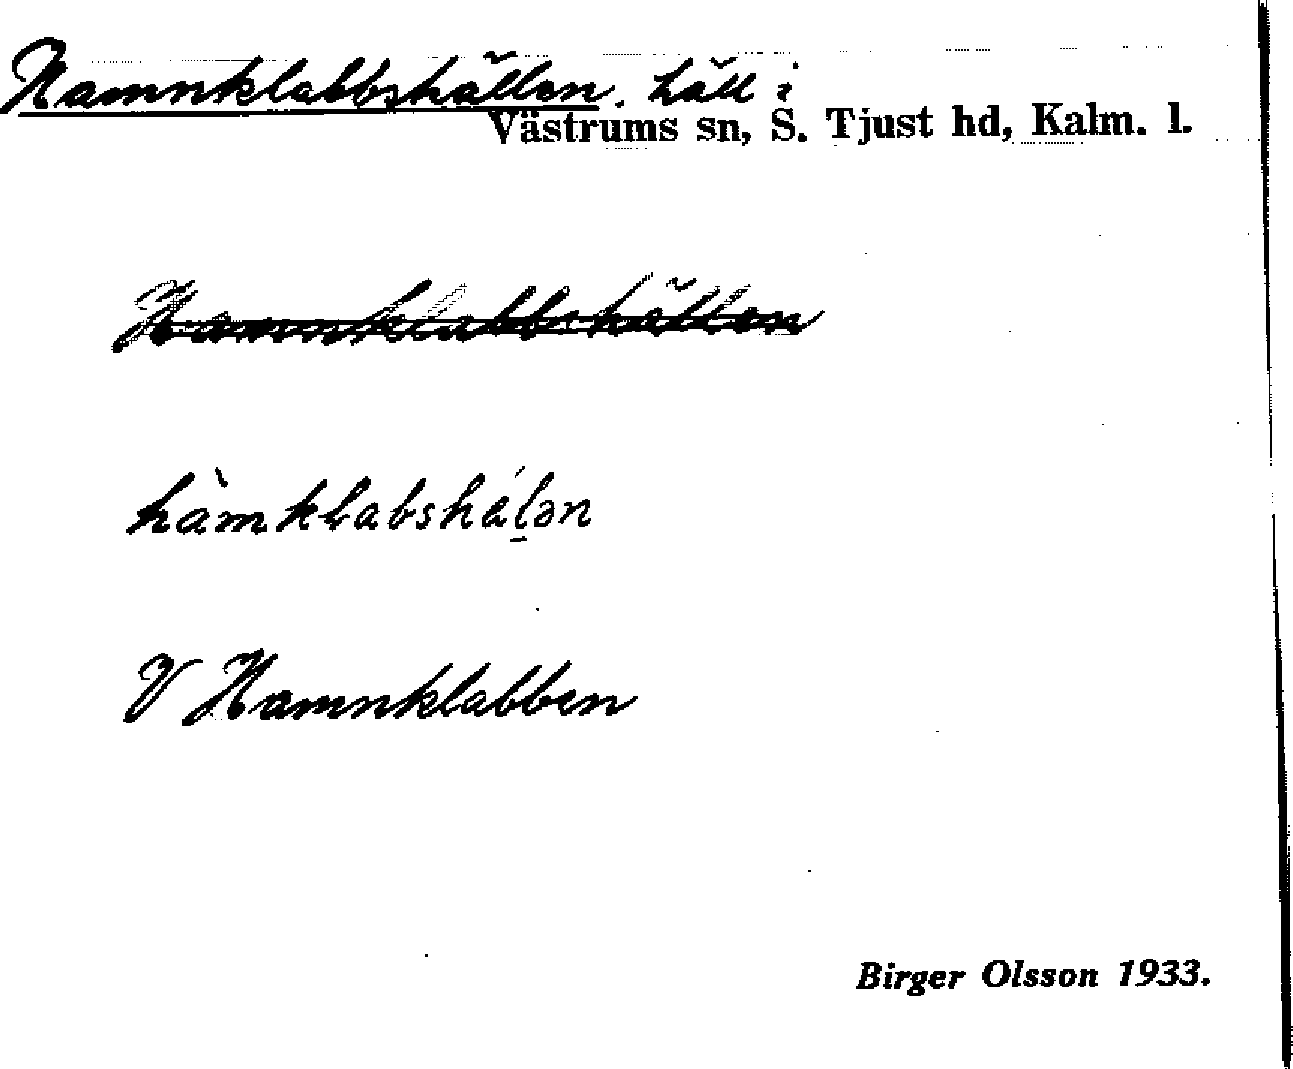 Hamnklabbshällen, häll i
Västrums sn, S. Tjust hd, Kalm. l.
Hamnklabbshällen
hàmklabshál̠ən
V Hamnklabben
Birger Olsson 1933.